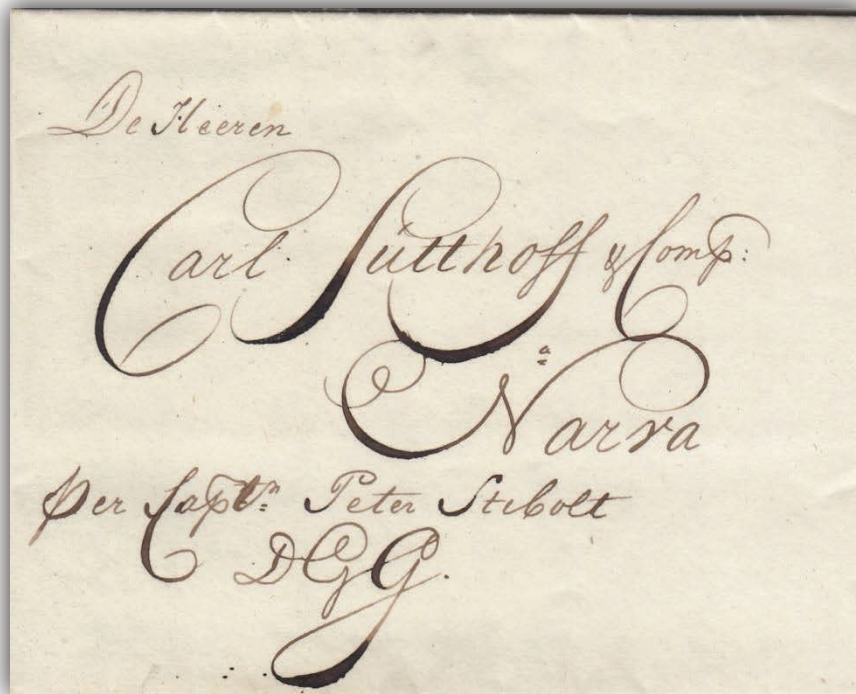 De Heeren
Carl Sutthoff & Comp:
a
Narva
per Captn: Peter Stibolt
DGG.